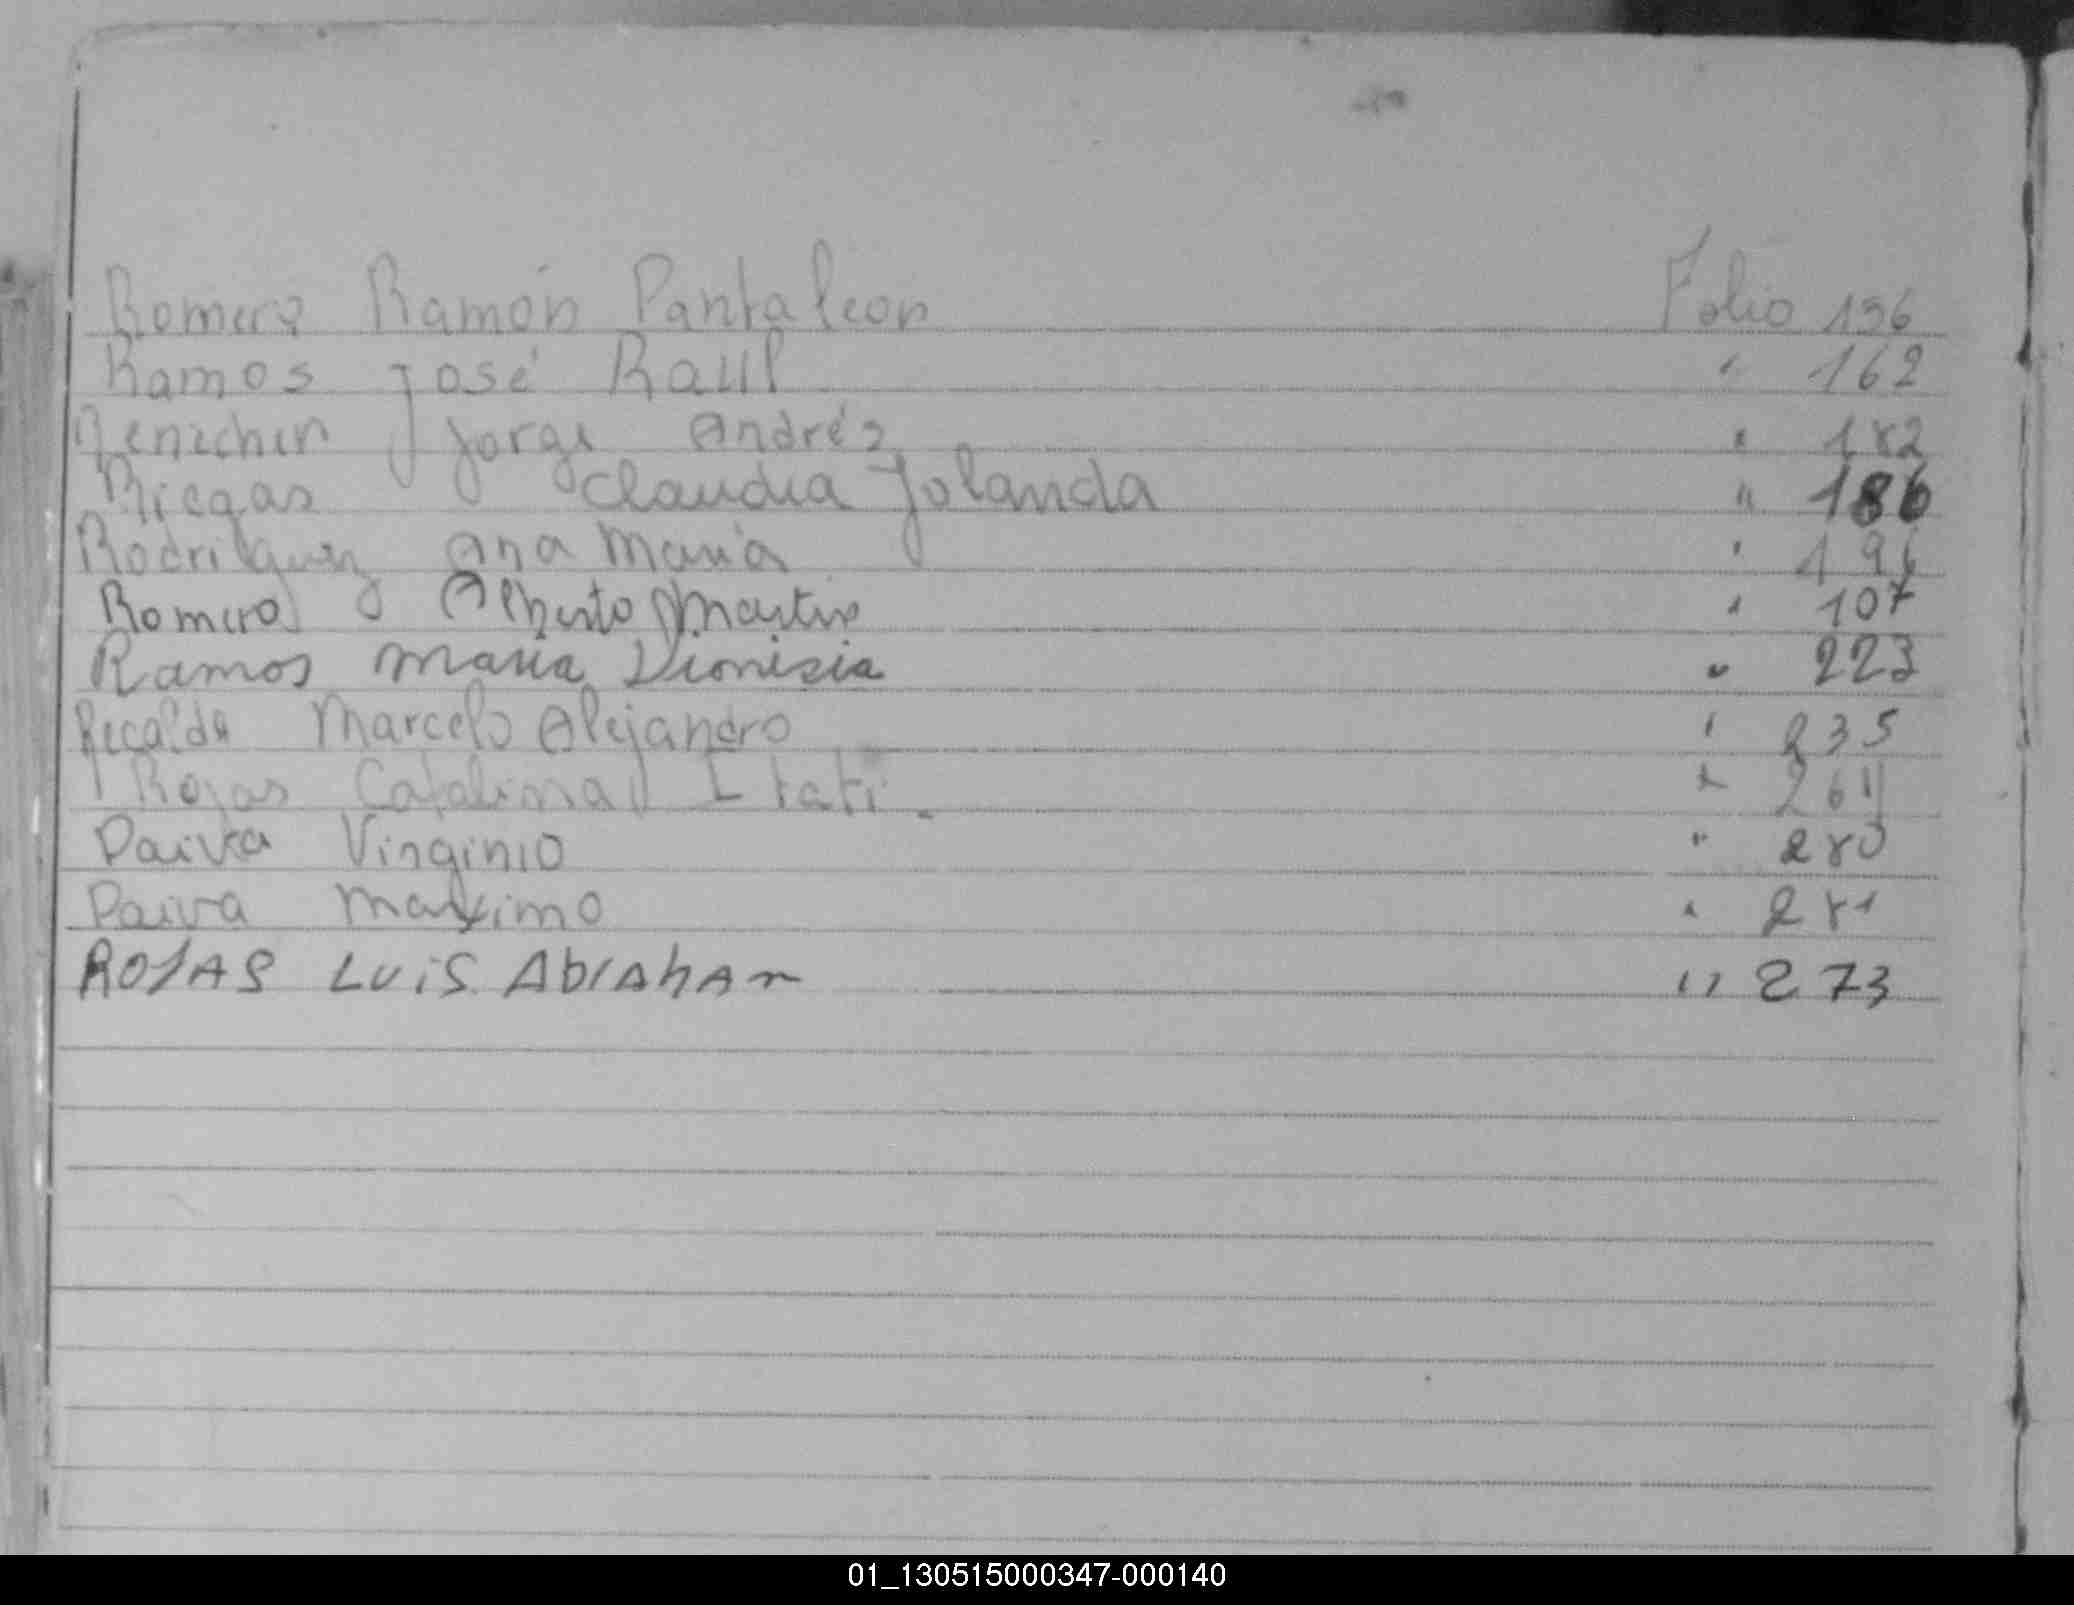 Romero Ramón Pantaleon Folio 156
Ramos José Raúl " 162
Jorge Andrés " 182
Riegas Claudia Yolanda " 186
Rodriguez Ana Maria "
Romero Alberto Martin " 107
Ramos Maria Dionisia " 223
Recalde Marcelo Alejandro " 235
Rojas Catalina Itati. "
Paiva Virginio " 280
Paiva Maximo " 281
ROJAS LUIS AbrAhAm " 273
01_130515000347-000140